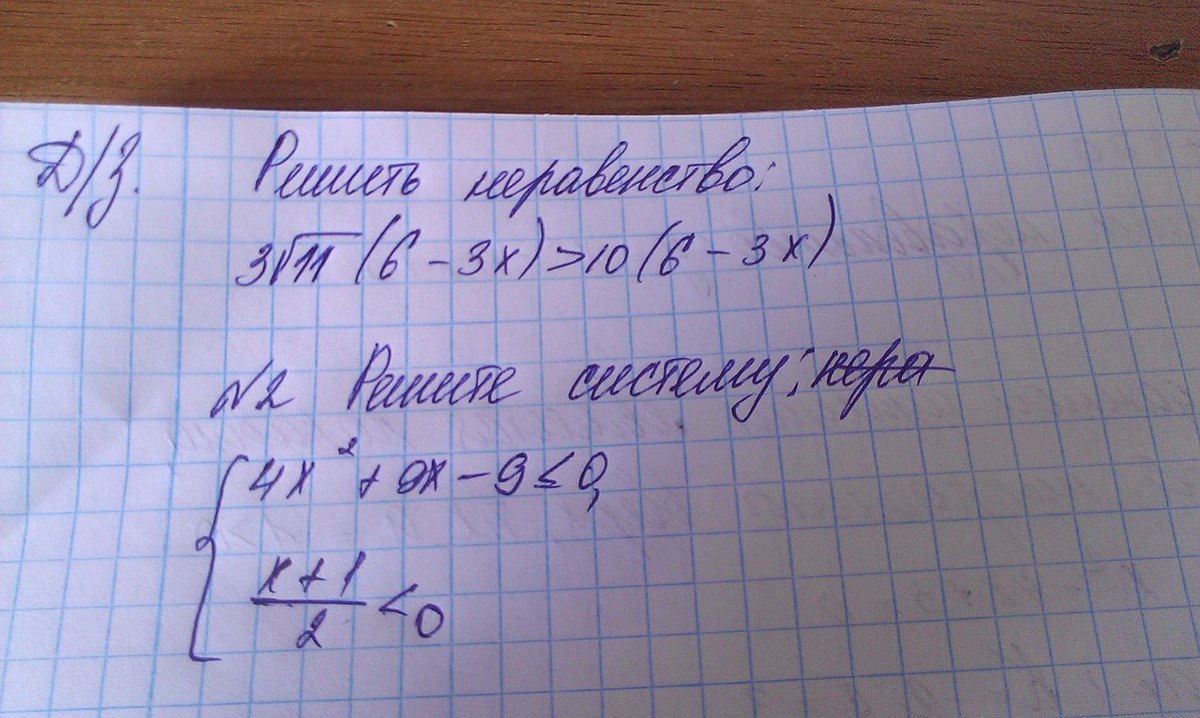 Д/З. Решить неравенство:
3√11 (6 - 3x) > 10 (6 - 3x)
№2 Решите систему: нера
{ 4x² + 9x - 9 ≤ 0,
x + 1
2
< 0